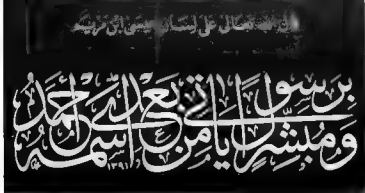 تعالى على لسان عيسى ابن مريم
وَمُبَشِّرًا بِرَسُولٍ يَأْتِي مِنْ بَعْدِي اسْمُهُ أَحْمَدُ
١٣٩١